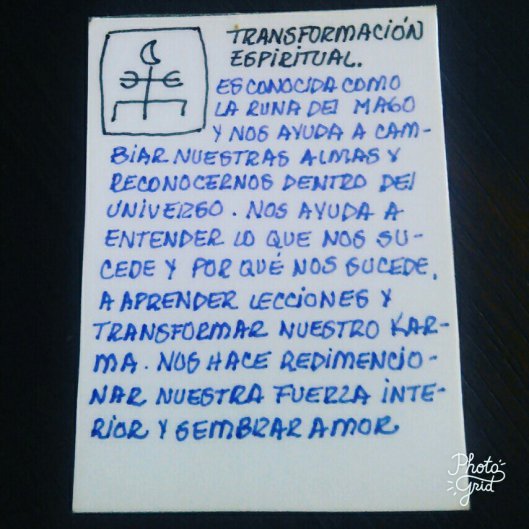 TRANSFORMACIÓN
ESPIRITUAL.
ES CONOCIDA COMO
LA RUNA DEL MAGO
Y NOS AYUDA A CAM-
BIAR NUESTRAS ALMAS Y
RECONOCERNOS DENTRO DEL
UNIVERSO. NOS AYUDA A
ENTENDER LO QUE NOS SU-
CEDE Y POR QUÉ NOS SUCEDE,
A APRENDER LECCIONES Y
TRANSFORMAR NUESTRO KAR-
MA. NOS HACE REDIMENCIO-
NAR NUESTRA FUERZA INTE-
RIOR Y SEMBRAR AMOR
Photo
Grid